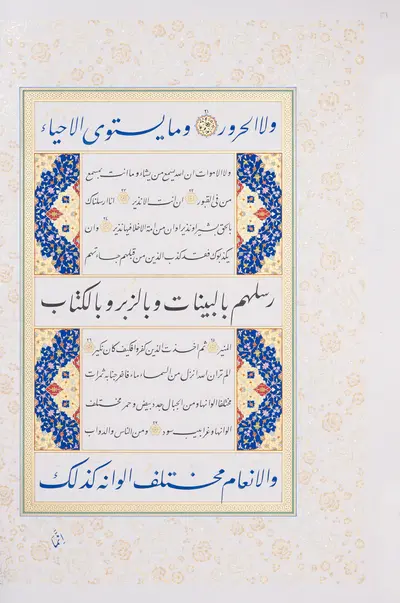 ولا الحرور وما يستوى الاحياء
ولا الاموات ان الله يسمع من يشاء وما انت بمسمع
من فى القبور ان انت الا نذير انا ارسلناك
بالحق بشيرا ونذيرا وان من امة الا خلا فيها نذير وان
يكذبوك فقد كذب الذين من قبلهم جاءتهم
رسلهم بالبينات وبالزبر وبالكتاب
المنير ثم اخذت الذين كفروا فكيف كان نكير
الم تر ان الله انزل من السماء ماء فاخرجنا به ثمرات
مختلفا الوانها ومن الجبال جدد بيض وحمر مختلف
الوانها وغرابيب سود ومن الناس والدواب
والانعام مختلف الوانه كذلك
انما